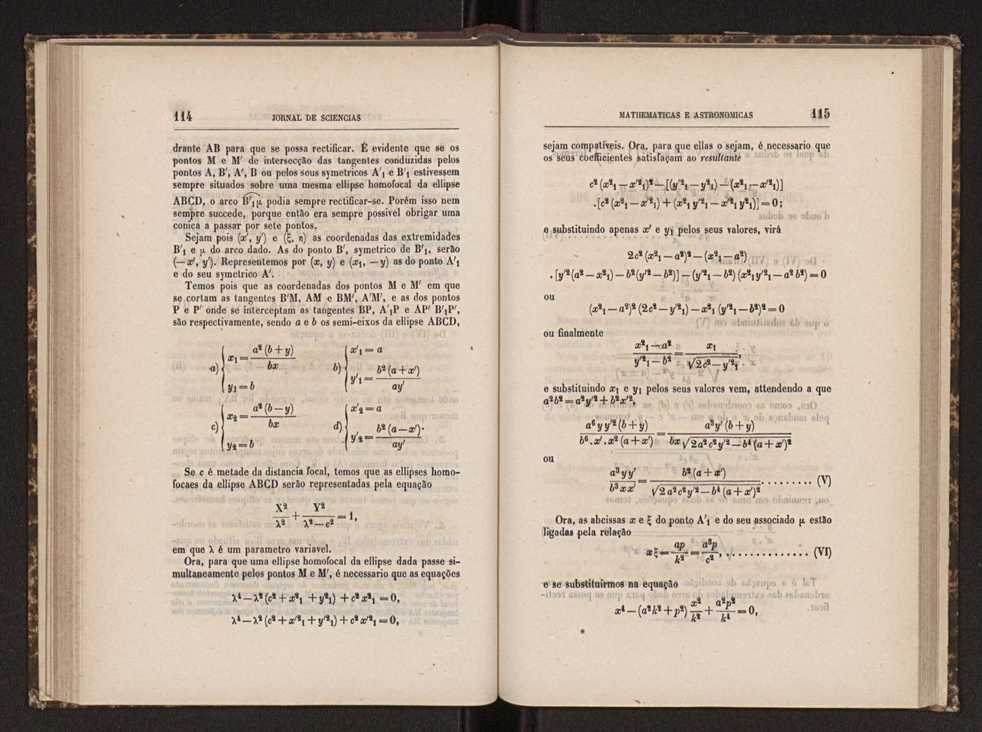 114 JORNAL DE SCIENCIAS
drante AB para que se possa rectificar. É evidente que se os
pontos M e M′ de intersecção das tangentes conduzidas pelos
pontos A, B′, A′, B ou pelos seus symetricos A′₁ e B′₁ estivessem
sempre situados sobre uma mesma ellipse homofocal da ellipse
ABCD, o arco B′₁μ podia sempre rectificar-se. Porém isso nem
sempre succede, porque então era sempre possivel obrigar uma
conica a passar por sete pontos.
Sejam pois (x′, y′) e (ξ, η) as coordenadas das extremidades
B′₁ e μ do arco dado. As do ponto B′, symetrico de B′₁, serão
(—x′, y′). Representemos por (x, y) e (x₁, —y) as do ponto A′₁
e do seu symetrico A′.
Temos pois que as coordenadas dos pontos M e M′ em que
se cortam as tangentes B′M, AM e BM′, A′M′, e as dos pontos
P e P′ onde se interceptam as tangentes BP, A′₁P e AP′ B′₁P′,
são respectivamente, sendo a e b os semi-eixos da ellipse ABCD,
a) { x₁ = a² (b + y) / bx b) { x′₁ = a
y₁ = b y′₁ = b² (a + x′) / ay′
c) { x₂ = a² (b — y) / bx d) { x′₂ = a
y₂ = b y′₂ = b² (a — x′) / ay′
Se c é metade da distancia focal, temos que as ellipses homo-
focaes da ellipse ABCD serão representadas pela equação
X² / λ² + Y² / λ² — c² = 1,
em que λ é um parametro variavel.
Ora, para que uma ellipse homofocal da ellipse dada passe si-
multaneamente pelos pontos M e M′, é necessario que as equações
λ⁴ — λ² (c² + x²₁ + y²₁) + c² x²₁ = 0,
λ⁴ — λ² (c² + x′²₁ + y′²₁) + c² x′²₁ = 0,
MATHEMATICAS E ASTRONOMICAS 115
sejam compativeis. Ora, para que ellas o sejam, é necessario que
os seus coefficientes satisfaçam ao resultante
c² (x²₁ — x′²₁)² — [(y′²₁ — y²₁) — (x²₁ — x′²₁)]
. [c² (x²₁ — x′²₁) + (x²₁ y′²₁ — x′²₁ y²₁)] = 0;
e substituindo apenas x′ e y₁ pelos seus valores, virá
2c² (x²₁ — a²)² — (x²₁ — a²)
. [y′² (a² — x²₁) — b² (y′² — b²)] — (y′²₁ — b²) (x²₁ y′²₁ — a² b²) = 0
ou
(x²₁ — a²)² (2c² — y′²₁) — x²₁ (y′²₁ — b²)² = 0
ou finalmente
x²₁ — a² / y′²₁ — b² = x₁ / √2c² — y′²₁,
e substituindo x₁ e y₁ pelos seus valores vem, attendendo a que
a²b² = a²y′² + b²x′²,
a⁶ y y′² (b + y) / b⁶ . x′ . x² (a + x′) = a³y′ (b + y) / bx √2a²c²y′² — b⁴ (a + x′)²
ou
a³ y y′ / b³ x x′ = b² (a + x′) / √2a²c²y′² — b⁴ (a + x′)² ......... (V)
Ora, as abcissas x e ξ do ponto A′₁ e do seu associado μ estão
ligadas pela relação
xξ = ap / k² = a³p / c², ............. (VI)
e se substituirmos na equação
x⁴ — (a²k² + p²) x² / k² + a²p² / k⁴ = 0,
*